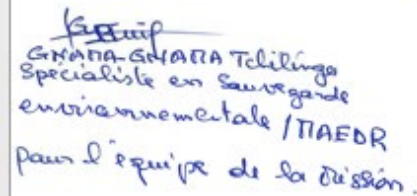 GNAMA-GNAMA Tchilinga
Spécialiste en Sauvegarde
environnementale /MAEDR
pour l'équipe de la mission.